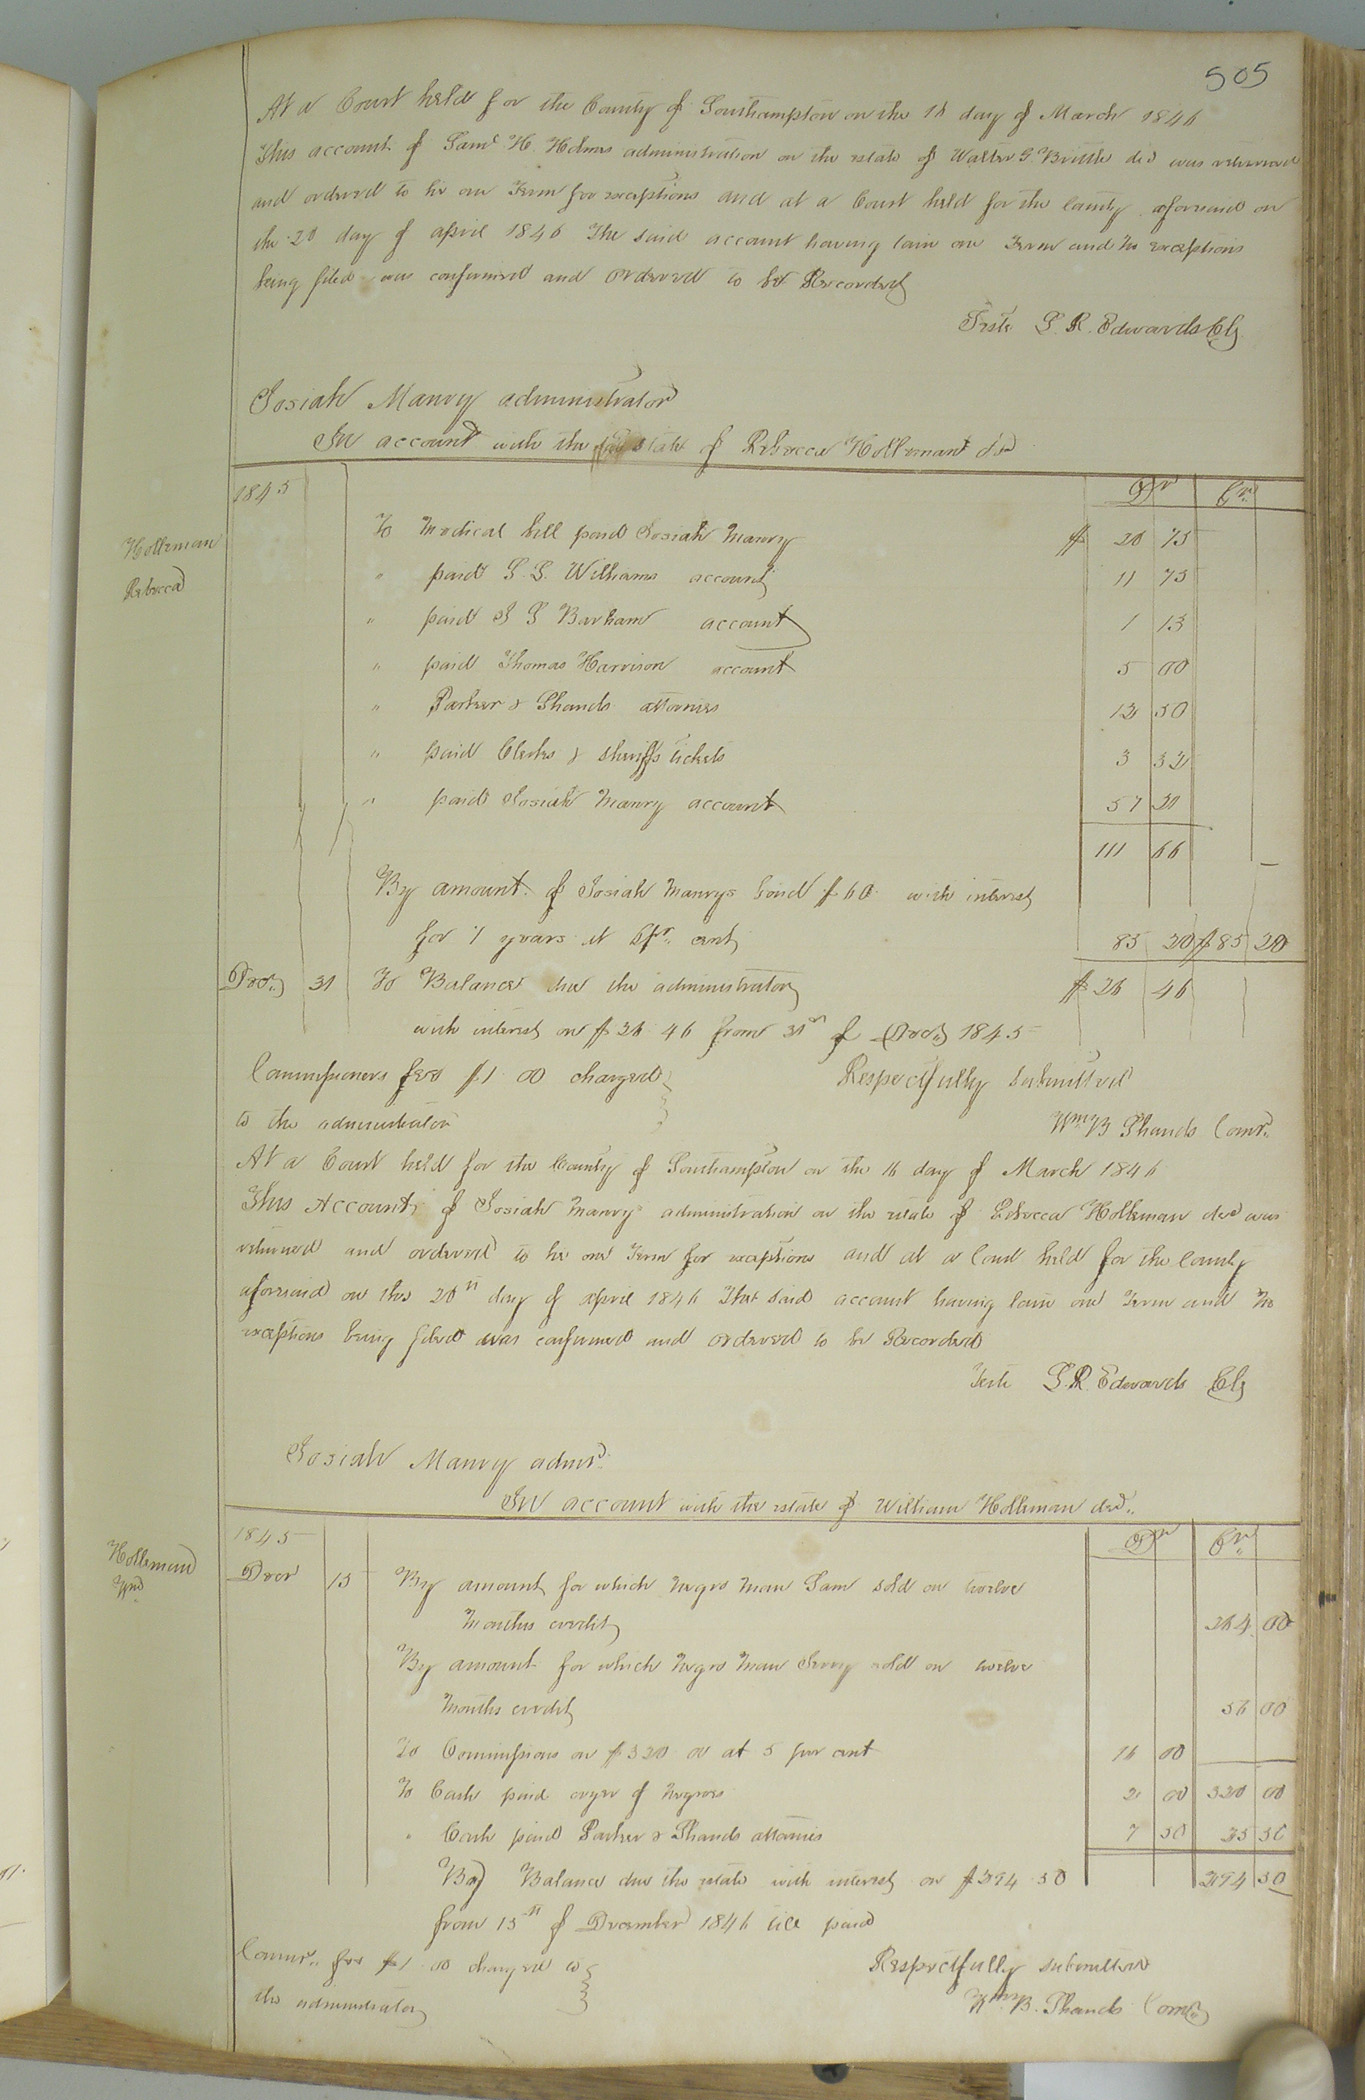 505
At a Court held for the County of Southampton on the 16 day of March 1846
This account of Saml H. Holmes administration on the estate of Walter G Brittle decd was returned
and ordered to lie one Term for exceptions and at a Court held for the County aforesaid on
the 20 day of April 1846 The said account having lain one Term and no exceptions
being filed was confirmed and ordered to be Recorded
Teste L. R. Edwards Clk
Josiah Manry administrator
In account with the estate of Rebecca Holleman decd
1845 Dr Cr
Holleman
Rebecca
To Medical bill paid Josiah Manry $ 20 75
" paid Williams account 11 75
" paid Barham account 1 13
" paid Thomas Harrison account 5 00
" Parker & Shands attornies 12 50
" paid Clerks & sheriffs tickets 3 32
" paid Josiah Manry account 57 21
111 66
By amount of Josiah Manrys bond $60 with interest
for 7 years at 6 pr cent 85 20 $85 20
Decr 31 To Balance due the administrator $26 46
with interest on $26 46 from 31st of Decr 1845
Commissioners fee $1 00 charged Respectfully submitted
to the administrator Wm B Shands Comr
At a Court held for the County of Southampton on the 16 day of March 1846
This Account of Josiah Manrys administration on the estate of Rebecca Holleman decd was
returned and ordered to lie one Term for exceptions and at a Court held for the County
aforesaid on the 20th day of April 1846 That said account having lain one Term and no
exceptions being filed was confirmed and ordered to be Recorded
Teste L. R. Edwards Clk
Josiah Manry admr
In account with the estate of William Holleman decd
1845 Dr Cr
Holleman
Wm
Decr 15 By amount for which negro man Sam sold on twelve
Months credit 264 00
By amount for which negro man sold on twelve
Months credit 56 00
To Commissions on $320 00 at 5 per cent 16 00
To Cash paid cryer of negroes 2 00 320 00
" Cash paid Parker & Shands attornies 7 50 25 50
By Balance due the estate with interest on $294 50 294 50
from 15th of December 1846 till paid
Commr fee $1 00 charged to Respectfully submitted
the administrator Wm B. Shands Comr